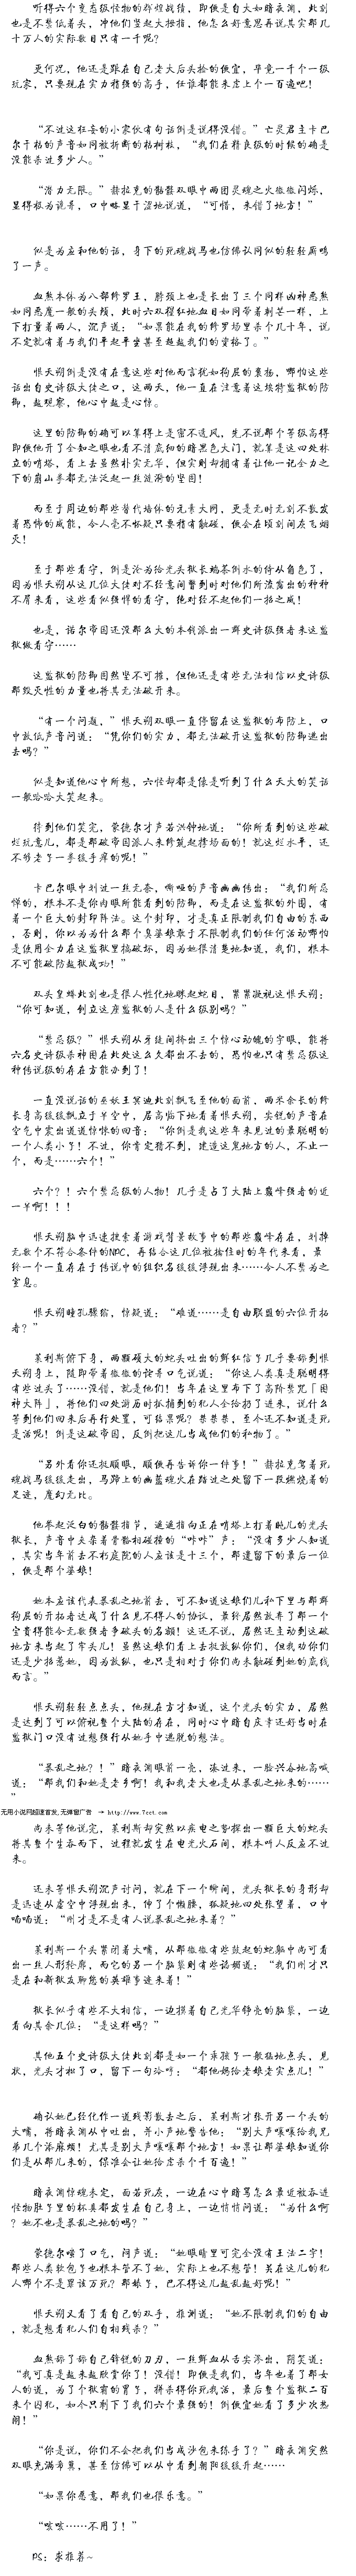 听得六个变态级怪物的辉煌战绩，即使是自大如暗夜渊，此刻
也是不禁低着头，冲他们竖起大拇指，他怎么好意思再说其实那几
十万人的实际数目只有一千呢？
更何况，他还是跟在自己老大后头捡的便宜，毕竟一千个一级
玩家，只要现在实力稍强的高手，任谁都能来虐上个一百遍吧！
“不过这狂妄的小家伙有句话倒是说得没错。”亡灵君主卡巴
尔干枯的声音如同被折断的枯树枝，“我们在精良级的时候的确是
没能杀过多少人。”
“潜力无限。”赫拉克的骷髅双眼中两团灵魂之火微微闪烁，
显得极为诡异，口中略显干涩地说道，“可惜，来错了地方！”
似是为应和他的话，身下的死魂战马也仿佛认同似的轻轻嘶鸣
了一声。
血煞本体为八部修罗王，脖颈上也是长出了三个同样凶神恶煞
如同恶魔一般的头颅，此时六双猩红地血目如同带着刺芒一样，上
下打量着两人，沉声道：“如果能在我的修罗场里杀个几十年，说
不定就有着与我们平起平坐甚至超越我们的资格了。”
恨天朔倒是没有在意这些对他而言犹如狗屁的褒扬，哪怕这些
话出自史诗级大佬之口，这两天，他一直在注意着这埃特监狱的防
御，越观察，他心中越是心惊。
这里的防御的确可以算得上是密不透风，先不说那个等级高得
即使他开了全知之眼也看不清底细的暗黑色大门，就算是这四处林
立的哨塔，看上去虽然朴实无华，但实则却拥有着让他一记全力之
下的崩山拳都无法泛起一丝涟漪的坚固！
而至于周边的那些替代墙体的元素大网，更是无时无刻不散发
着恐怖的威能，令人毫不怀疑只要稍有触碰，便会在顷刻间灰飞烟
灭！
至于那些看守，倒是沦为给光头狱长端茶倒水的侍从角色了，
因为恨天朔从这几位大佬对不经意间瞥到时对他们所流露出的种种
不屑来看，这些看似强悍的看守，绝对经不起他们一招之威！
也是，诺尔帝国还没那么大的本钱派出一群史诗级强者来这监
狱做看守……
这监狱的防御固然坚不可摧，但他还是有些无法相信以史诗级
那毁灭性的力量也将其无法破开来。
“有一个问题，”恨天朔双眼一直停留在这监狱的布防上，口
中放低声音问道：“凭你们的实力，都无法破开这监狱的防御逃出
去吗？”
似是知道他心中所想，六怪却都是像是听到了什么天大的笑话
一般哈哈大笑起来。
待到他们笑完，蒙德尔才声若洪钟地道：“你所看到的这些破
烂玩意儿，都是那破帝国派人来修筑起撑场面的！就这烂水平，还
不够老子一拳猿手席的呢！”
卡巴尔眼中划过一丝无奈，嘶哑的声音幽幽传出：“我们所忌
惮的，根本不是你肉眼所能看到的防御，而是在这监狱的外围，有
着一个巨大的封印阵法。这个封印，才是真正限制我们自由的东西
，否则，你以为为什么那个臭婆娘敢于不限制我们的任何活动哪怕
是使用全力在这监狱里搞破坏，因为她很清楚地知道，我们，根本
不可能破防越狱成功！”
双头皇蟒此刻也是很人性化地眯起蛇目，紧紧凝视这恨天朔：
“你可知道，创立这座监狱的人是什么级别吗？”
“禁忌级？”恨天朔从牙缝间挤出三个惊心动魄的字眼，能将
六名史诗级杀神困在此处这么久都出不去的，恐怕也只有禁忌级这
种传说级的存在方能办到了！
一直没说话的巫妖王冥迪此刻飘飞至他的面前，两米余长的修
长身高缓缓飘立于半空中，居高临下地看着恨天朔，尖锐的声音在
空气中震出道道惊悚的回音：“你倒是我这些年来见过的最聪明的
一个人类小子！不过，你肯定猜不到，建造这鬼地方的人，不止一
个，而是……六个！”
六个？！六个禁忌级的人物！几乎是占了大陆上巅峰强者的近
一半啊！！！
恨天朔脑中迅速搜索着游戏背景故事中的那些巅峰存在，划掉
无数个不符合条件的NPC，再结合这几位被擒住时的年代来看，最
终一个一直存在于传说中的组织名缓缓浮现出来……令人不禁为之
窒息。
恨天朔瞳孔骤缩，惊疑道：“难道……是自由联盟的六位开拓
者？”
莱利斯俯下身，两颗硕大的蛇头吐出的鲜红信子几乎要舔到恨
天朔身上，随即带着微微的诧异口气说道：“你这人类真是聪明得
有些过头了……没错，就是他们！当年在这里布下了高阶禁咒「困
神大阵」，将他们四处游历时抓捕到的犯人全给扔了进来，说什么
等到他们回来后再行处置，可结果呢？桀桀桀，至今还不知道是死
是活呢！倒是这破帝国，反倒把这儿当成他们的私物了。”
“另外看你还挺顺眼，顺便再告诉你一件事！”赫拉克驾着死
魂战马缓缓走出，马蹄上的幽蓝魂火在踏过之处留下一段燃烧着的
足迹，魔幻无比。
他举起泛白的骷髅指节，遥遥指向正在哨塔上打着盹儿的光头
狱长，声音中夹杂着骨骼相碰撞的“咔咔”声：“没有多少人知道
，其实当年前去不朽庭院的人应该是十三个，那遗留下的最后一位
，便是那个婆娘！
她本应该代表暴乱之地前去，可不知道这娘们儿私下里与那群
狗屁的开拓者达成了什么见不得人的协议，最终居然放弃了那一个
宝贵得能令无数强者争破头的名额！这还不说，居然还主动到这破
地方来当起了牢头儿！虽然这娘们看上去挺放纵你们，但我劝你们
还是少招惹她，因为放纵，也只是相对于你们尚未能碰到她的底线
而言。”
恨天朔轻轻点点头，他现在方才知道，这个光头的实力，居然
是达到了可以俯视整个大陆的存在，同时心中暗自庆幸还好当时在
监狱门口没有过想强行从她手中逃脱的想法。
“暴乱之地？！”暗夜渊眼前一亮，凑过来，一脸兴奋地高喊
道：“那我们和她是老乡啊！我和我老大也是从暴乱之地来的……
”
无用小说网超速首发,无弹窗广告 → http://www.7cct.com
尚未等他说完，莱利斯却突然以疾电之势探出一颗巨大的蛇头
将其整个生吞而下，过程就发生在电光火石间，根本叫人反应不过
来。
还未等恨天朔沉声讨问，就在下一个瞬间，光头狱长的身形却
是迅速从虚空中浮现出来，伸了个懒腰，狐疑地四处张望着，口中
喃喃道：“刚才是不是有人说暴乱之地来着？”
莱利斯一个头紧闭着大嘴，从那微微有些鼓起的蛇躯中尚可看
出一丝人形轮廓，而它的另一个脑袋则有些讪讪道：“我们刚才只
是在和新狱友聊您的英雄事迹来着！”
狱长似乎有些不大相信，一边摸着自己光华锃亮的脑袋，一边
看向其余几位：“是这样吗？”
其他五个史诗级大佬此刻都是如一个乖孩子一般猛地点头，见
状，光头才松了口，留下一句冷哼：“都他妈给老娘老实点儿！”
确认她已经化作一道残影散去之后，莱利斯才张开另一个头的
大嘴，将暗夜渊从中吐出，并小声地警告他：“别大声嚷嚷给我兄
弟几个添麻烦！尤其是别大声嚷嚷那个地方！如果让那婆娘知道你
们是从那儿来的，保准会让她给虐杀个千百遍！”
暗夜渊惊魂未定，面若死灰，一边在心中暗骂怎么最近被吞进
怪物肚子里的杯具都发生在自己身上，一边悄悄问道：“为什么啊
？她不也是暴乱之地的吗？”
蒙德尔喘了口气，闷声道：“她眼睛里可完全没有王法二字！
那些人类软包子也根本管不了她，实际上也不想管！关在这儿的犯
人哪个不是罪该万死？那娘子，巴不得这儿越乱越好呢！”
恨天朔又看了看自己的双手，推测道：“她不限制我们的自由
，就是想看犯人们自相残杀？”
血煞舔了舔自己锋锐的刀刃，一丝鲜血从舌尖渗出，阴笑道：
“我可真是越来越欣赏你了！没错！即使是我们，当年也着了那女
人的道，为了个狱霸的冒子，拼杀得你死我活，最后整个监狱二百
来个囚犯，如今只剩下了我们六个最强的！倒便宜她看了多少次热
闹！”
“你是说，你们不会把我们当成沙包来练手了？”暗夜渊突然
双眼充满希冀，甚至仿佛可以从中看到朝阳缓缓升起……
“如果你愿意，那我们也很乐意。”
“咳咳……不用了！”
PS：求推荐~